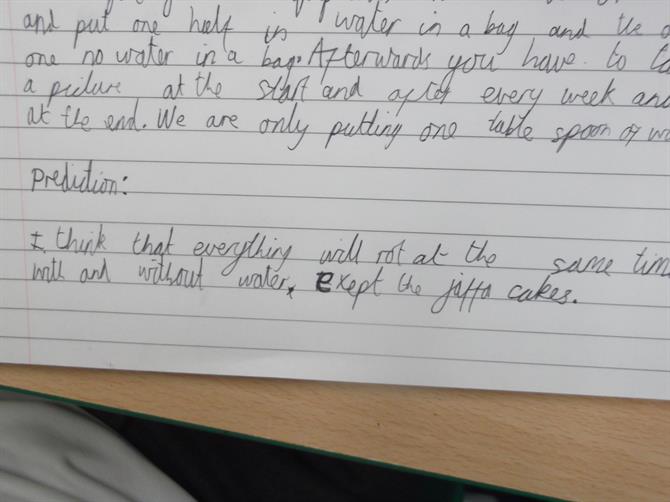 and put one half in water in a bag and the
one no water in a bag. Afterwards you have to
a picture at the start and after every week and
at the end. We are only putting one table spoon of
Prediction:
I think that everything will rot at the same time
with and without water, exept the jaffa cakes.